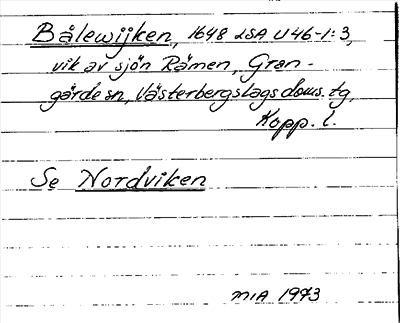 Bålewijken, 1648 LSA U46-1:3,
vik av sjön Rämen, Gran-
gärde sn, Västerbergslags doms. tg,
Kopp. l.
Se Nordviken
MIA 1973